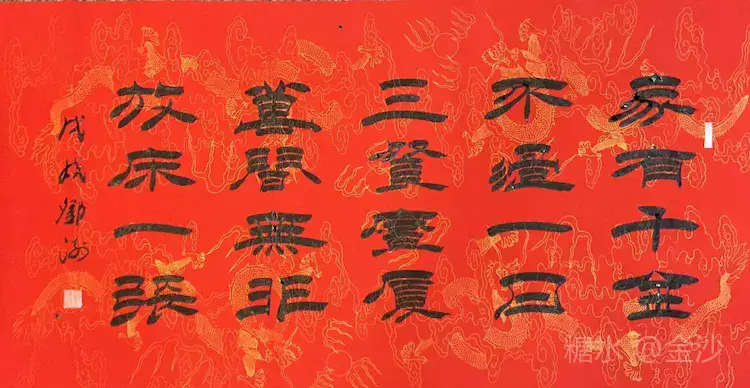 家有千金
不過一日
三餐廣厦
萬間無非
放床一張
戊戌
糖水 @金沙